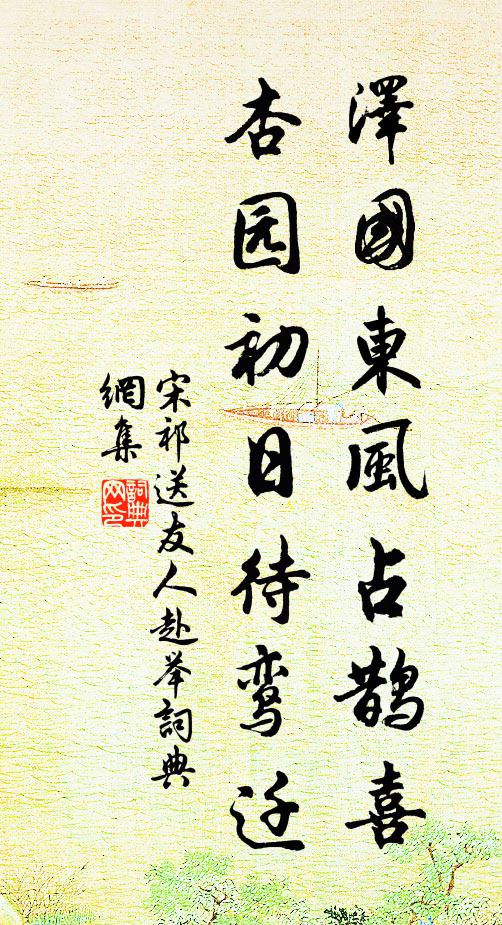 澤國東風占鹊喜
杏园初日待鸾迁
宋祁送友人赴举詞典
網集
詞典
网印